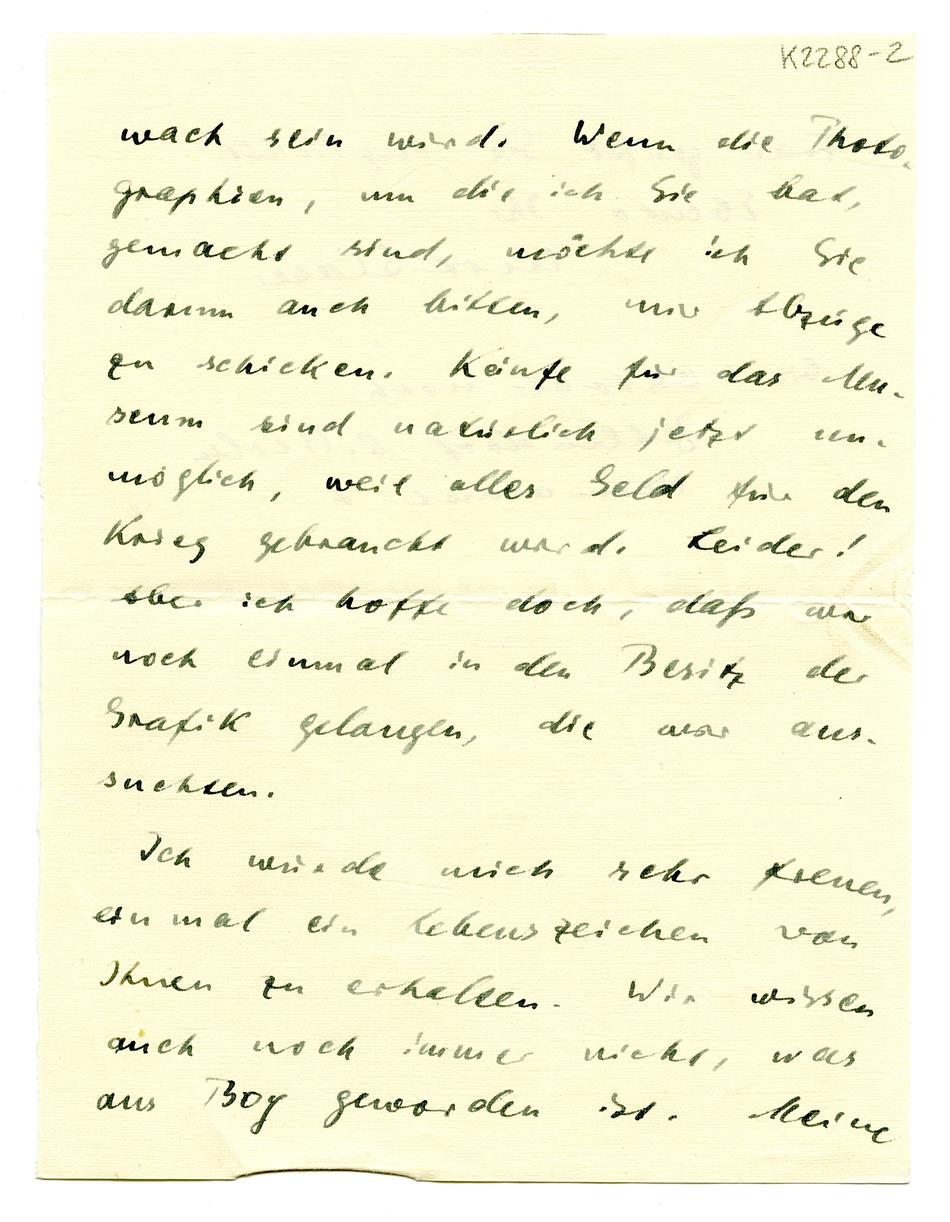 K2288-2
wach sein wird. Wenn die Photo-
graphien, um die ich Sie bat,
gemacht sind, möchte ich Sie
darum auch bitten, mir Abzüge
zu schicken. Käufe für das Mu-
seum sind natürlich jetzt un-
möglich, weil alles Geld für den
Krieg gebraucht wird. Leider!
Aber ich hoffe doch, daß wir
noch einmal in den Besitz der
Grafik gelangen, die wir aus-
suchten.
Ich würde mich sehr freuen,
einmal ein Lebenszeichen von
Ihnen zu erhalten. Wir wissen
auch noch immer nicht, was
aus Boy geworden ist. Meine